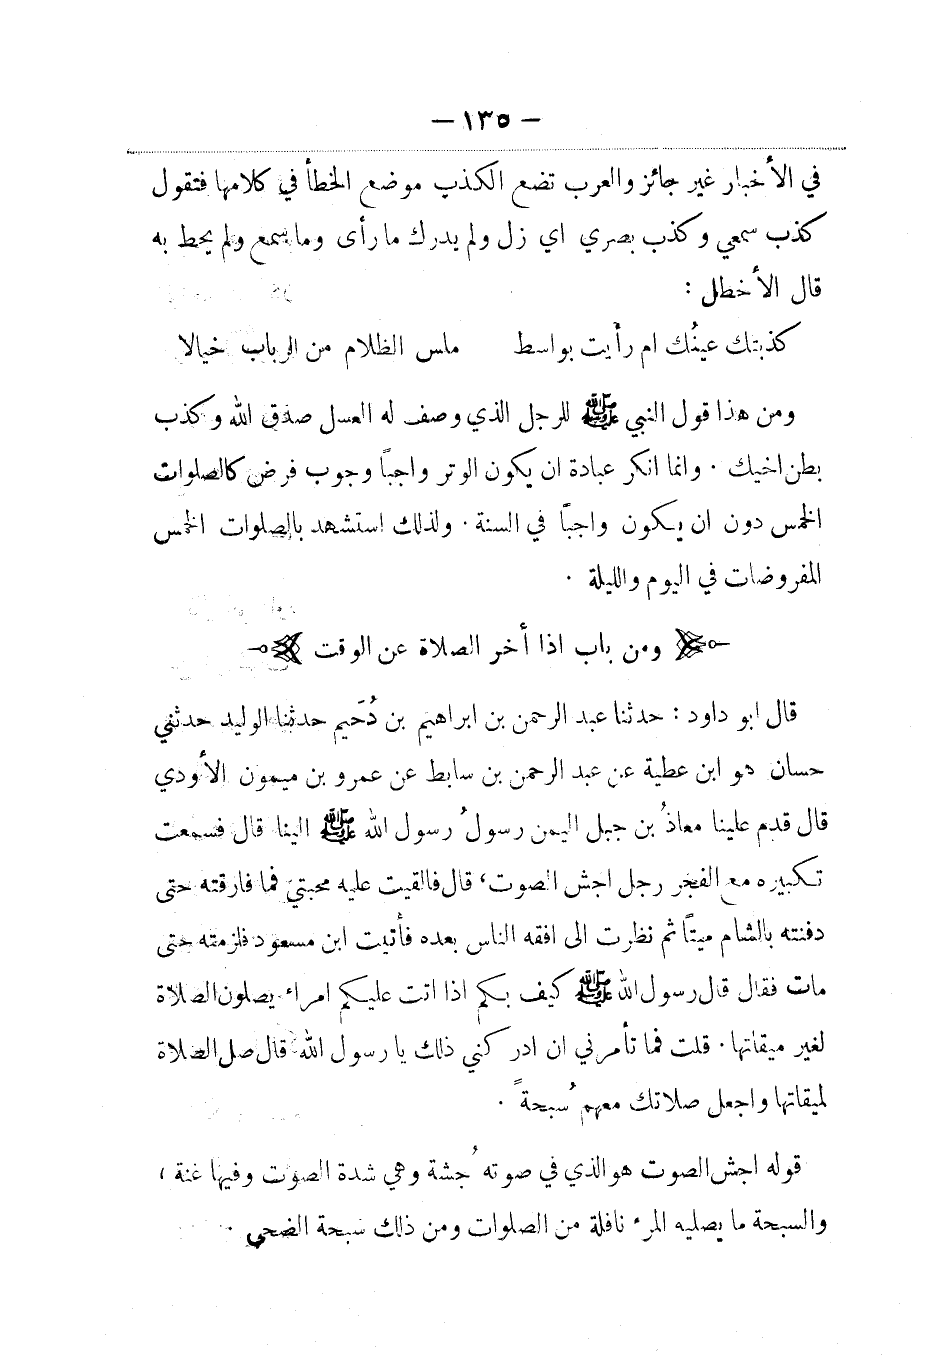 — ١٣٥ —
في الأخبار غير جائز والعرب تضع الكذب موضع الخطأ في كلامها فتقول
كذب سمعي وكذب بصري اي زل ولم يدرك ما رأى وما سمع ولم يحط به
قال الأخطل :
كذبتك عينُك ام رأيت بواسط ملس الظلام من الرباب خيالا
ومن هذا قول النبي ﷺ للرجل الذي وصف له العسل صدق الله وكذب
بطن اخيك . وانما انكر عبادة ان يكون الوتر واجباً وجوب فرض كالصلوات
الخمس دون ان يكون واجباً في السنة . ولذلك استشهد بالصلوات الخمس
المفروضات في اليوم والليلة .
ومن باب اذا أخر الصلاة عن الوقت
قال ابو داود : حدثنا عبد الرحمن بن ابراهيم بن دُحَيم حدثنا الوليد حدثني
حسان هو ابن عطية عن عبد الرحمن بن سابط عن عمرو بن ميمون الأودي
قال قدم علينا معاذُ بن جبل اليمن رسولُ رسول الله ﷺ الينا قال فسمعت
تكبيره مع الفجر رجل اجش الصوت، قال فالقيت عليه محبتي فما فارقته حتى
دفنته بالشام ميتاً ثم نظرت الى افقه الناس بعده فأتيت ابن مسعود فلزمته حتى
مات فقال قال رسول الله ﷺ كيف بكم اذا اتت عليكم امراء يصلون الصلاة
لغير ميقاتها . قلت فما تأمرني ان ادركني ذلك يا رسول الله قال صل الصلاة
لميقاتها واجعل صلاتك معهم سُبحةً .
قوله اجش الصوت هو الذي في صوته جُشة وهي شدة الصوت وفيها غنة ،
والسبحة ما يصليه المرء نافلة من الصلوات ومن ذلك سبحة الضحى .